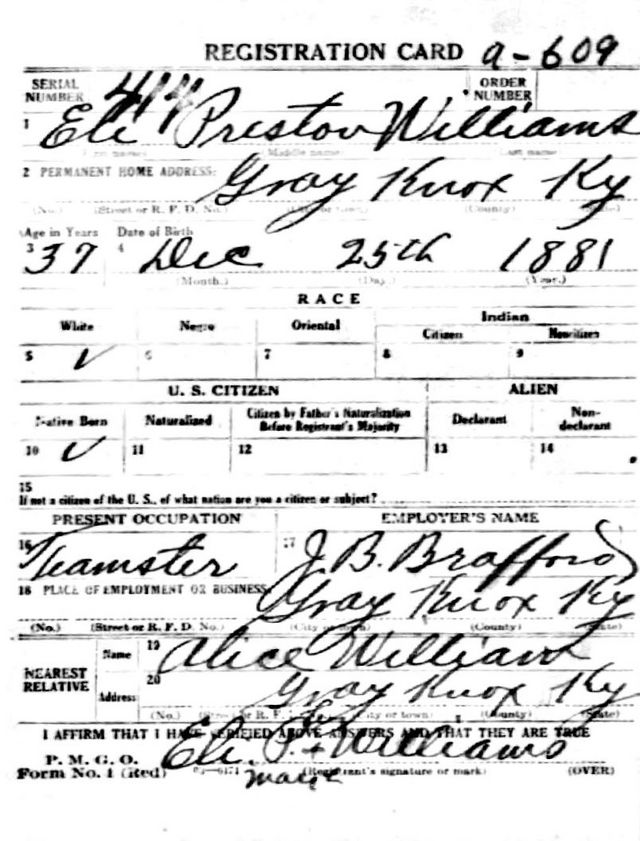 REGISTRATION CARD a-609
SERIAL NUMBER 414 ORDER NUMBER
1 Eli Preston Williams
(First name) (Middle name) (Last name)
2 PERMANENT HOME ADDRESS: Gray Knox Ky
(No.) (Street or R. F. D. No.) (City or town) (County) (State)
Age in Years Date of Birth
3 37 4 Dec 25th 1881
(Month.) (Day.) (Year.)
RACE
White Negro Oriental Indian
Citizen Noncitizen
5 ✓ 6 7 8 9
U. S. CITIZEN ALIEN
Native Born Naturalized Citizen by Father's Naturalization Before Registrant's Majority Declarant Non-declarant
10 ✓ 11 12 13 14
15
If not a citizen of the U. S., of what nation are you a citizen or subject?
PRESENT OCCUPATION EMPLOYER'S NAME
16 Teamster 17 J. B. Brafford
18 PLACE OF EMPLOYMENT OR BUSINESS: Gray Knox Ky
(No.) (Street or R. F. D. No.) (City or town) (County) (State)
NEAREST RELATIVE Name 19 Alice Williams
Address 20 Gray Knox Ky
(No.) (Street or R. F. D. No.) (City or town) (County) (State)
I AFFIRM THAT I HAVE VERIFIED ABOVE ANSWERS AND THAT THEY ARE TRUE
P. M. G. O.
Form No. 1 (Red) his
Eli P. + Williams
mark (Registrant's signature or mark) (OVER)